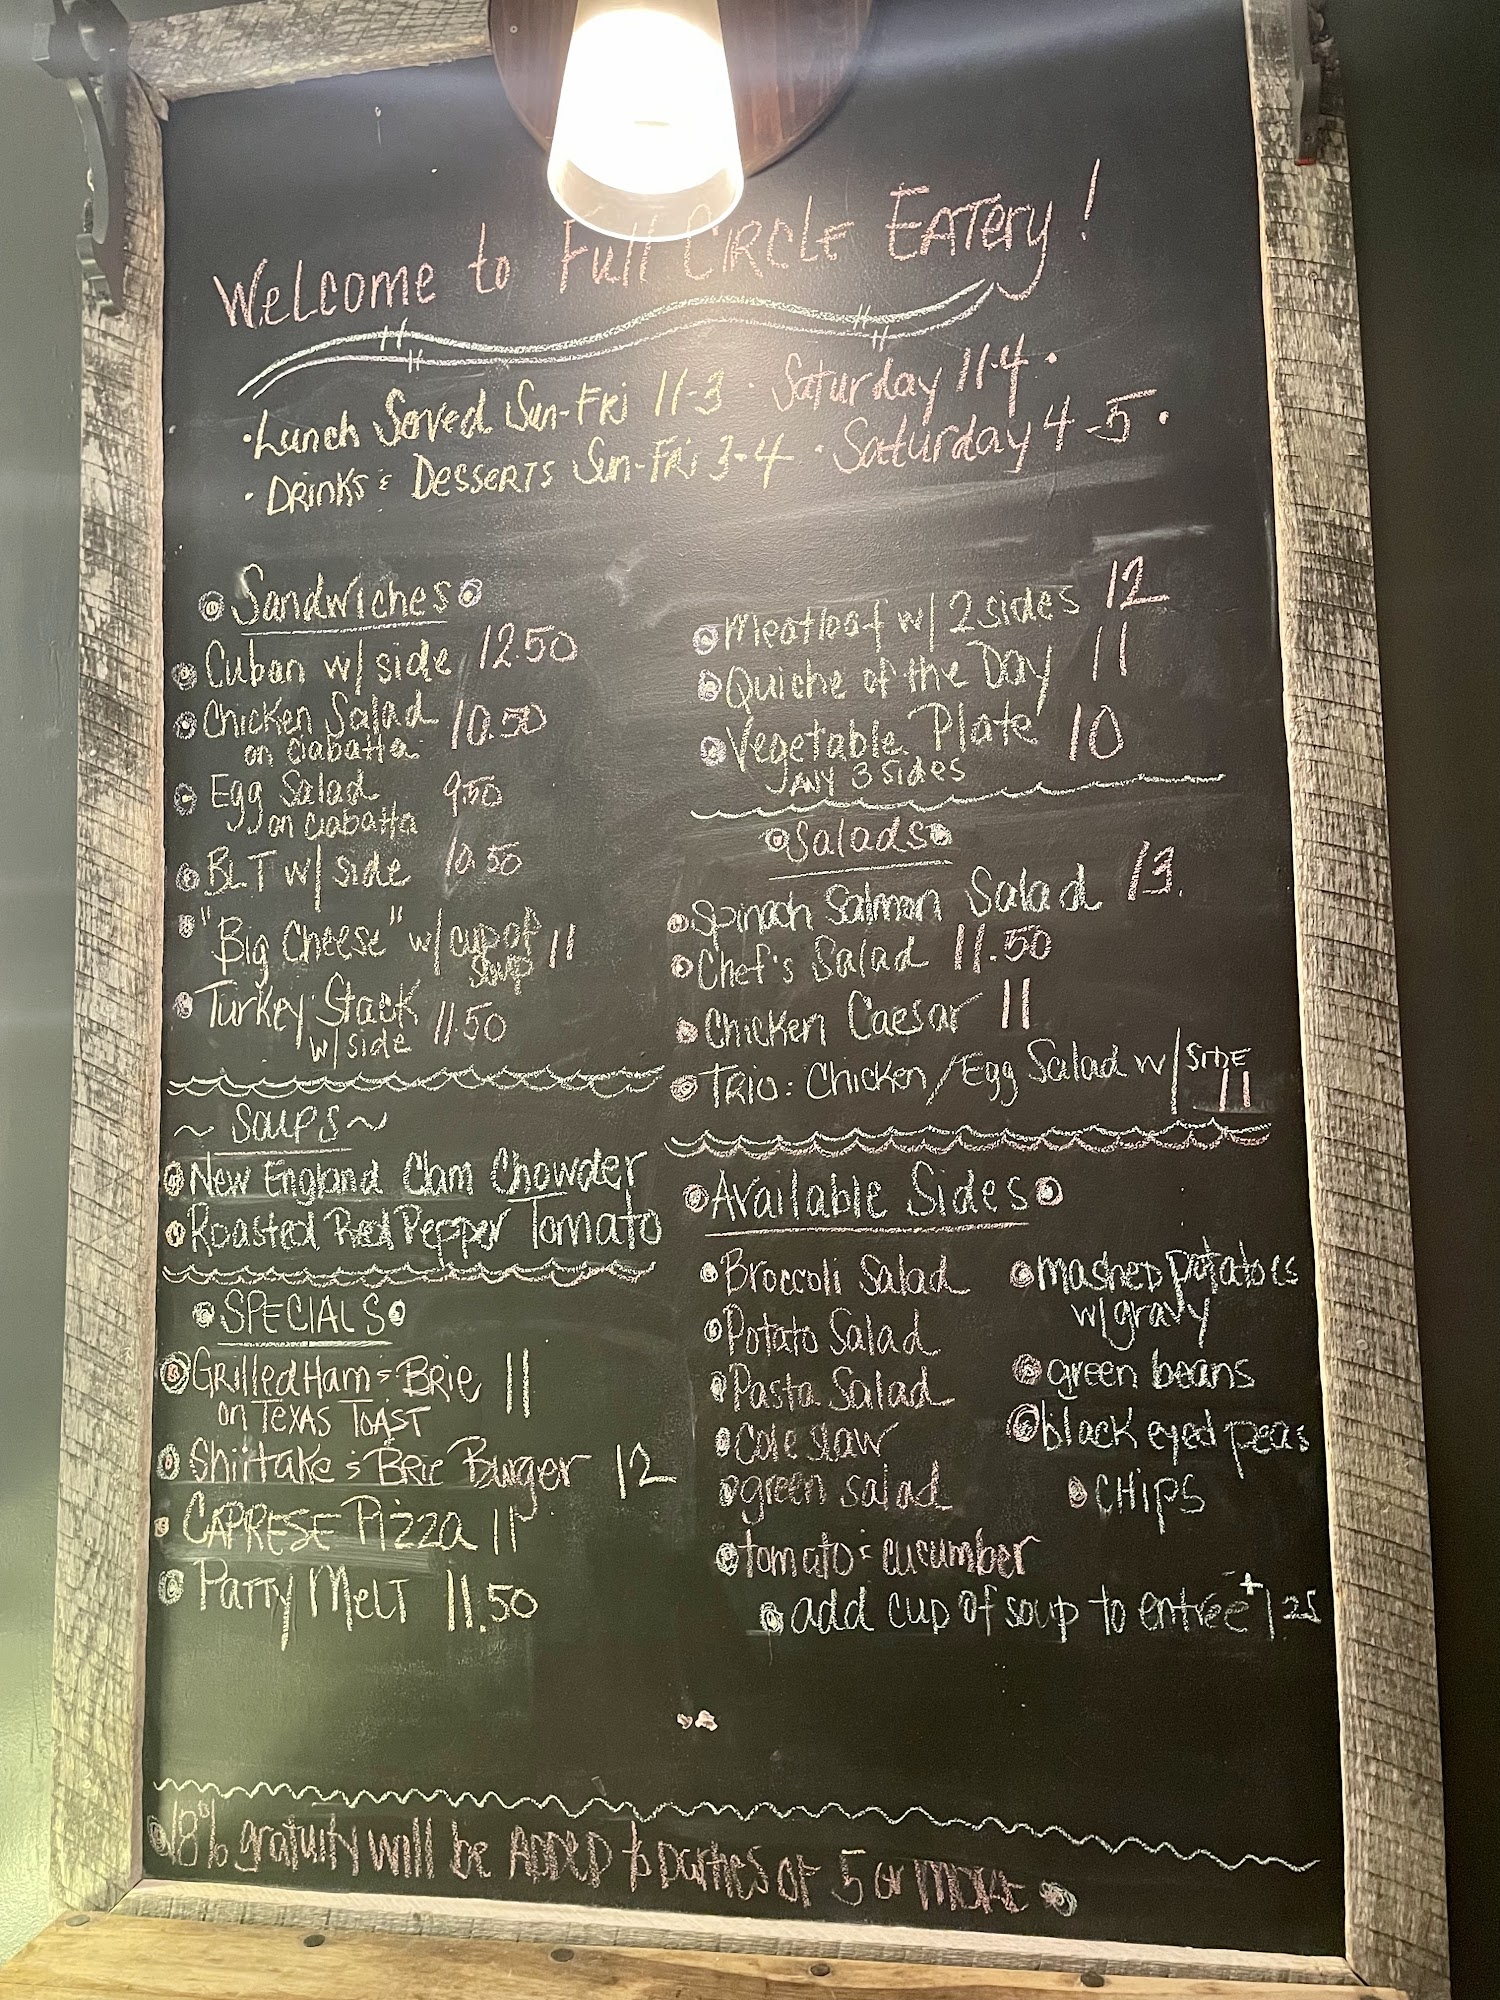 Welcome to Full Circle Eatery!
• Lunch Served Sun-Fri 11-3 • Saturday 11-4 •
• Drinks & Desserts Sun-Fri 3-4 • Saturday 4-5 •
Sandwiches
Cuban w/ side 12.50
Chicken Salad 10.50
on ciabatta
Egg Salad 9.50
on ciabatta
BLT w/ side 10.50
"Big Cheese" w/ cup of
soup 11
Turkey Stack 11.50
w/ side
~ Soups ~
New England Clam Chowder
Roasted Red Pepper Tomato
SPECIALS
Grilled Ham & Brie 11
on TEXAS TOAST
Shiitake & Brie Burger 12
CAPRESE Pizza 11
Patty Melt 11.50
Meatloaf w/ 2 sides 12
Quiche of the Day 11
Vegetable Plate 10
ANY 3 sides
Salads
Spinach Salmon Salad 13
Chef's Salad 11.50
Chicken Caesar 11
TRIO: Chicken/Egg Salad w/ SIDE
11
Available Sides
Broccoli Salad
Potato Salad
Pasta Salad
Cole slaw
green salad
tomato & cucumber
mashed potatoes
w/ gravy
green beans
black eyed peas
CHIPS
add cup of soup to entrée + 1.25
18% gratuity will be ADDED to parties of 5 or MORE